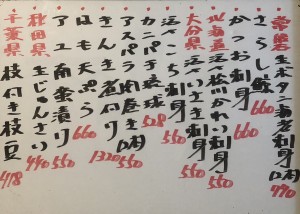 常磐 生本ボタン海老刺身 4本 990
さらし鯨 660
かつお刺身 550
北海道 活〆松川かれい刺身 550
大分県 活〆いさき刺身 550
活〆こち刺身 550
カニパチ琉球 528
アスパラ肉巻き 4本
きんき煮付け 1320
はも天ぷら 660
アユ南蛮漬け 550
秋田県 生じゅんさい 440
千葉県 枝付き枝豆 418